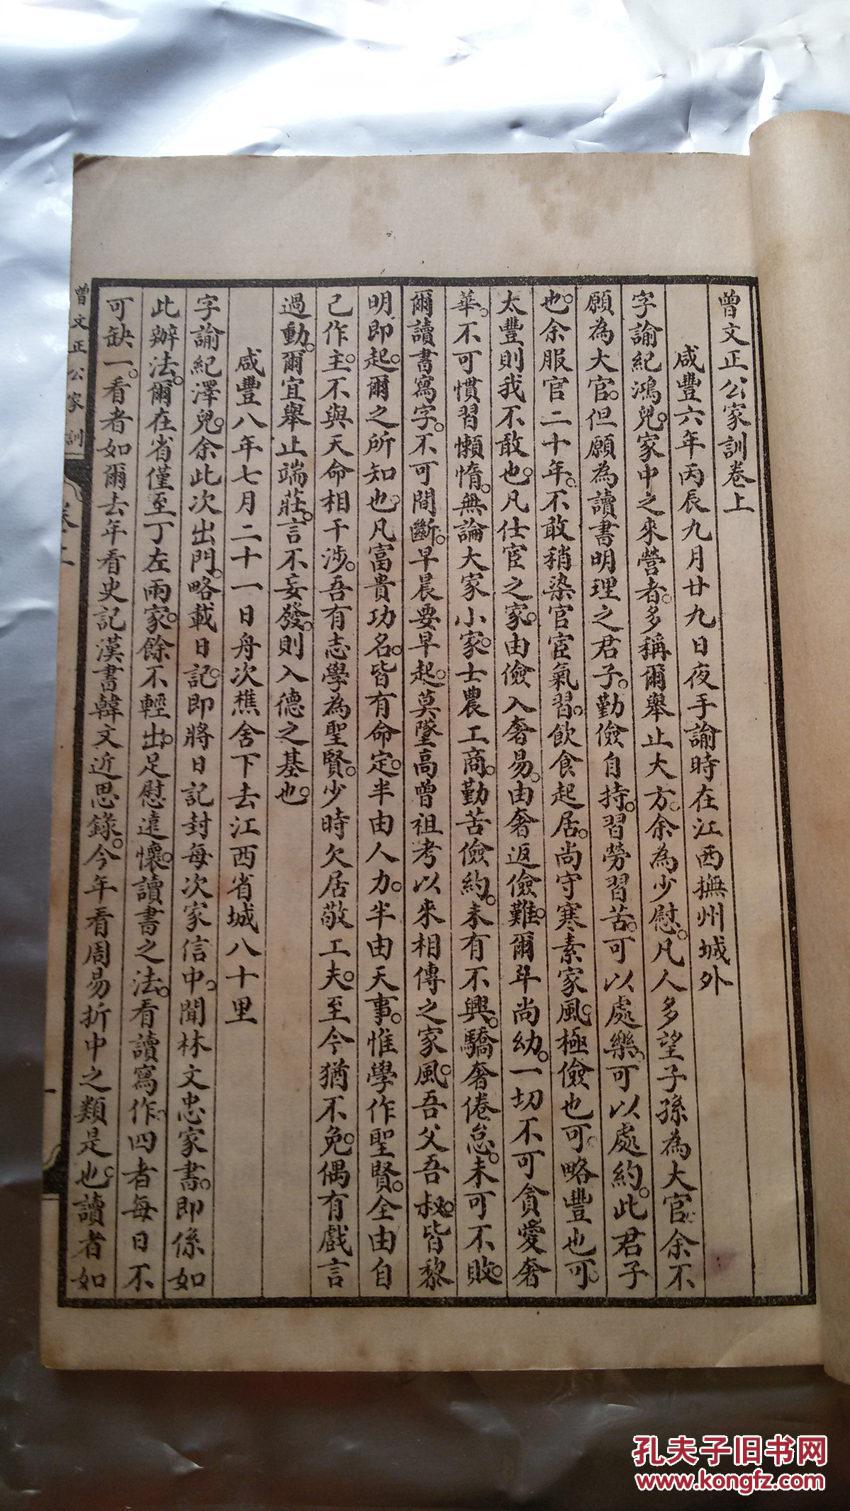 曾文正公家訓卷上
咸豐六年丙辰九月廿九日夜手諭時在江西撫州城外
字諭紀鴻兒。家中之來營者。多稱爾舉止大方。余為少慰。凡人多望子孫為大官。余不
願為大官。但願為讀書明理之君子。勤儉自持。習勞習苦。可以處樂。可以處約。此君子
也。余服官二十年。不敢稍染官宦氣習。飲食起居。尚守寒素家風。極儉也可。略豐也可。
太豐則我不敢也。凡仕宦之家。由儉入奢易。由奢返儉難。爾年尚幼。一切不可貪愛奢
華。不可慣習懶惰。無論大家小家。士農工商。勤苦儉約。未有不興。驕奢倦怠。未可不敗。
爾讀書寫字。不可間斷。早晨要早起。莫墜高曾祖考以來相傳之家風。吾父吾叔。皆黎
明即起。爾之所知也。凡富貴功名。皆有命定。半由人力。半由天事。惟學作聖賢。全由自
己作主。不與天命相干涉。吾有志學為聖賢。少時欠居敬工夫。至今猶不免。偶有戲言
過動。爾宜舉止端莊。言不妄發。則入德之基也。
咸豐八年七月二十一日舟次樵舍下去江西省城八十里
字諭紀澤兒。余此次出門。略載日記。即將日記封每次家信中。聞林文忠家書。即係如
此辦法。爾在省僅至丁左兩家。餘不輕出。足慰遠懷。讀書之法。看讀寫作。四者每日不
可缺一。看者如爾去年看史記漢書韓文近思錄。今年看周易折中之類是也。讀者如
曾文正公家訓
孔夫子旧书网
www.kongfz.com